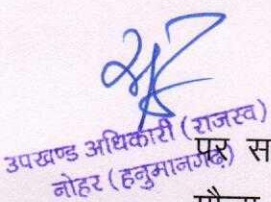 उपखण्ड अधिकारी (राजस्व)
नोहर (हनुमानगढ़)
पर स